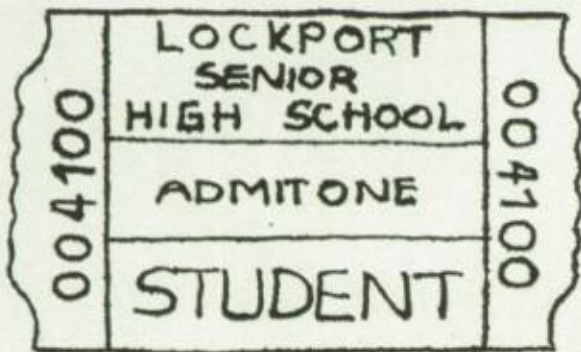 004100
LOCKPORT
SENIOR
HIGH SCHOOL
ADMIT ONE
STUDENT
004100